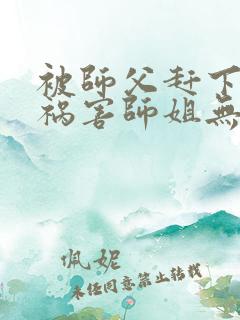 被師父赶下
祸害師姐無
佩妮
未经同意禁止转载